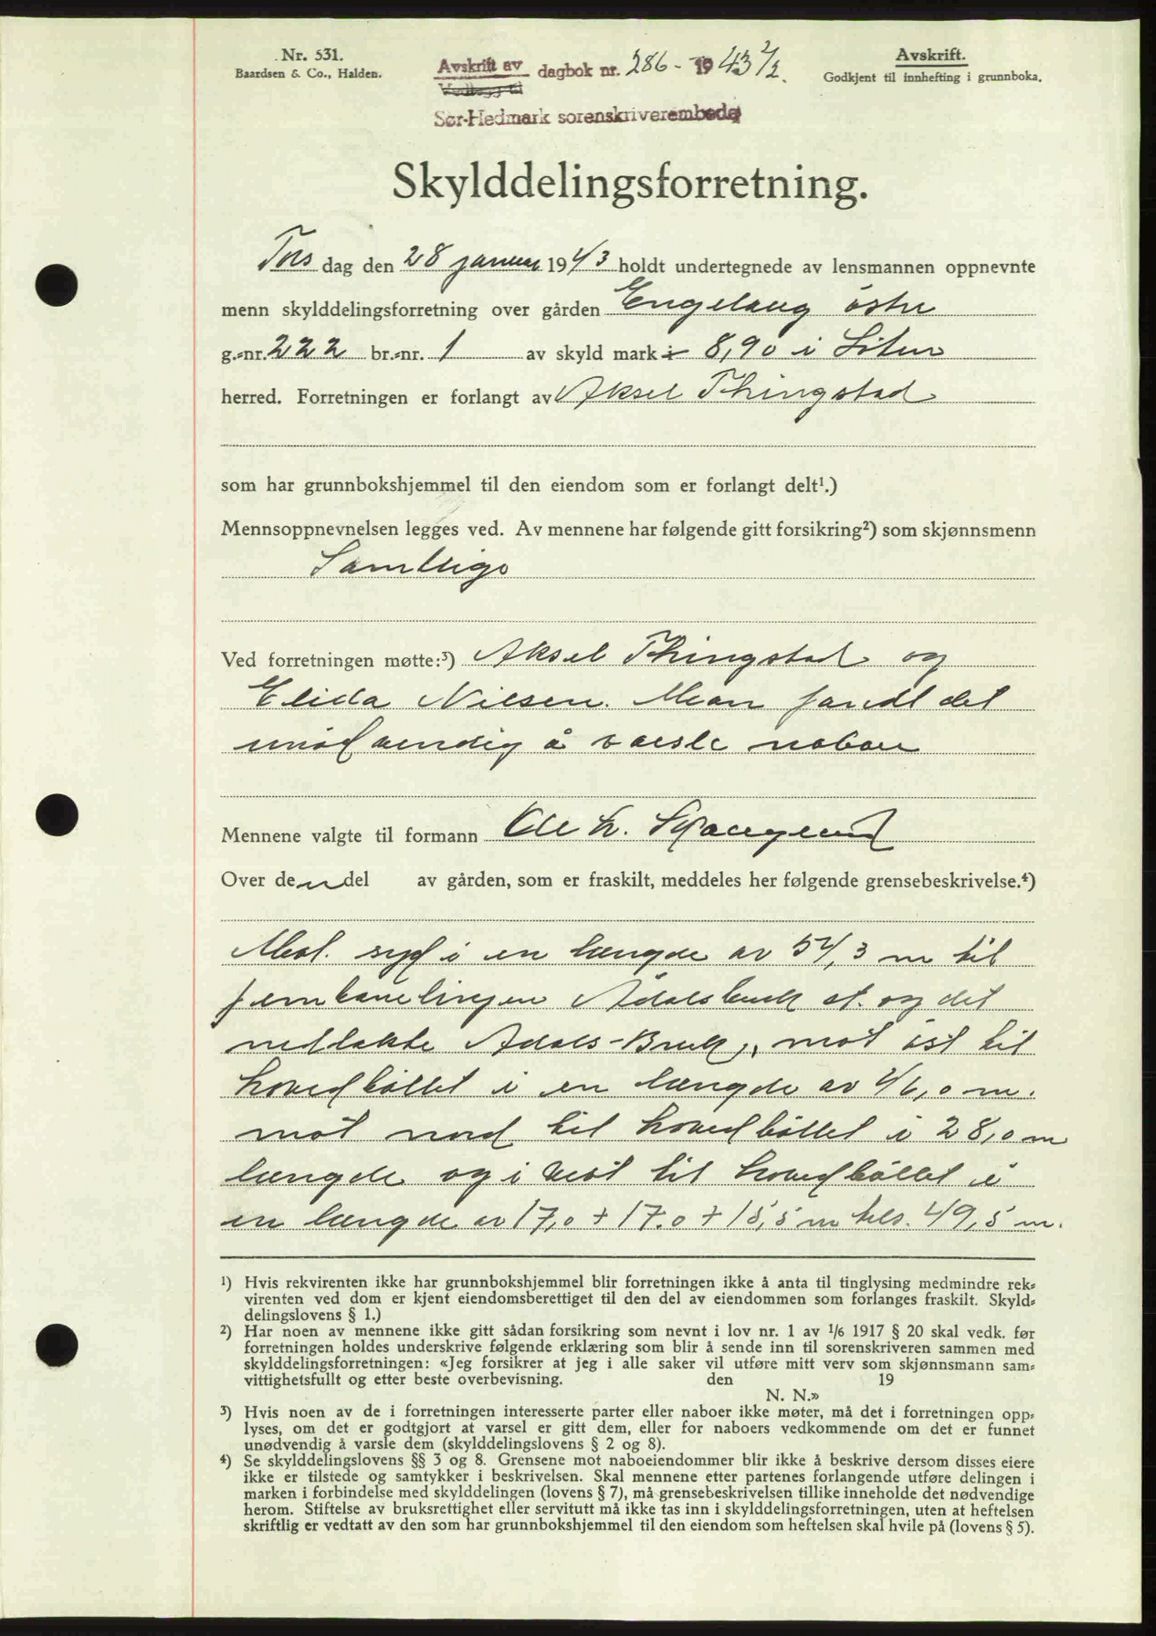 Nr. 531.
Baardsen & Co., Halden.
Avskrift av dagbok nr. 286 - 1943 2/2.
Vedlegg til
Sør-Hedmark sorenskriverembede
Avskrift.
Godkjent til innhefting i grunnboka.
Skylddelingsforretning.
Tors dag den 28 januar 1943 holdt undertegnede av lensmannen oppnevnte
menn skylddelingsforretning over gården Engelaug östre
g.-nr. 222 br.-nr. 1 av skyld mark 8,90 i Löten
herred. Forretningen er forlangt av Aksel Thingstad
som har grunnbokshjemmel til den eiendom som er forlangt delt¹.)
Mennsoppnevnelsen legges ved. Av mennene har følgende gitt forsikring²) som skjønnsmenn
Samtlige
Ved forretningen møtte:³) Aksel Thingstad og
Elida Nilsen. Man fandt det
unödvendig å varsle naboer
Mennene valgte til formann Ole H.
Over den del av gården, som er fraskilt, meddeles her følgende grensebeskrivelse.⁴)
Mot. syd i en længde av 54,3 m til
jernbanelinjen Ådalsbruk st. og det
nedlakte Adals-Bruk, mot öst til
hovedböllet i en længde av 46,0 m.
mot nord til hovedböllet i 28,0 m
længde og i vest til hovedböllet i
en længde av 17,0 + 17.0 + 15,5 m tils. 49,5 m.
¹) Hvis rekvirenten ikke har grunnbokshjemmel blir forretningen ikke å anta til tinglysing medmindre rek-
virenten ved dom er kjent eiendomsberettiget til den del av eiendommen som forlanges fraskilt. Skyld-
delingslovens § 1.)
²) Har noen av mennene ikke gitt sådan forsikring som nevnt i lov nr. 1 av 1/6 1917 § 20 skal vedk. før
forretningen holdes underskrive følgende erklæring som blir å sende inn til sorenskriveren sammen med
skylddelingsforretningen: «Jeg forsikrer at jeg i alle saker vil utføre mitt verv som skjønnsmann sam-
vittighetsfullt og etter beste overbevisning. den 19
N. N.»
³) Hvis noen av de i forretningen interesserte parter eller naboer ikke møter, må det i forretningen opp-
lyses, om det er godtgjort at varsel er gitt dem, eller for naboers vedkommende om det er funnet
unødvendig å varsle dem (skylddelingslovens § 2 og 8).
⁴) Se skylddelingslovens §§ 3 og 8. Grensene mot naboeiendommer blir ikke å beskrive dersom disses eiere
ikke er tilstede og samtykker i beskrivelsen. Skal mennene etter partenes forlangende utføre delingen i
marken i forbindelse med skylddelingen (lovens § 7), må grensebeskrivelsen tillike inneholde det nødvendige
herom. Stiftelse av bruksrettighet eller servitutt må ikke tas inn i skylddelingsforretningen, uten at heftelsen
skriftlig er vedtatt av den som har grunnbokshjemmel til den eiendom som heftelsen skal hvile på (lovens § 5).